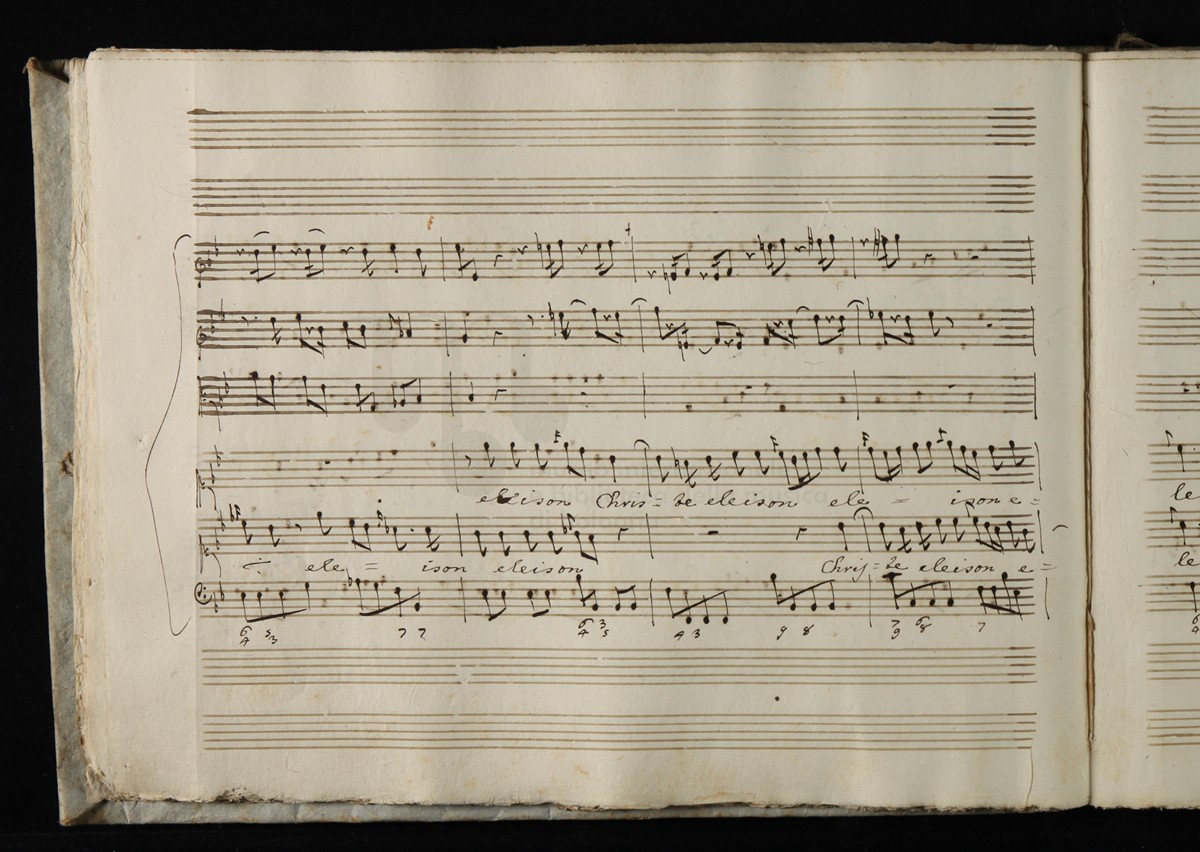 eleison Chris = te eleison ele = ison e =
le
ele = ison eleison Chris = te eleison e =
le
6 5 7 7 6 3 4 3 9 8 7 6 7
4 3 4 5 9 8